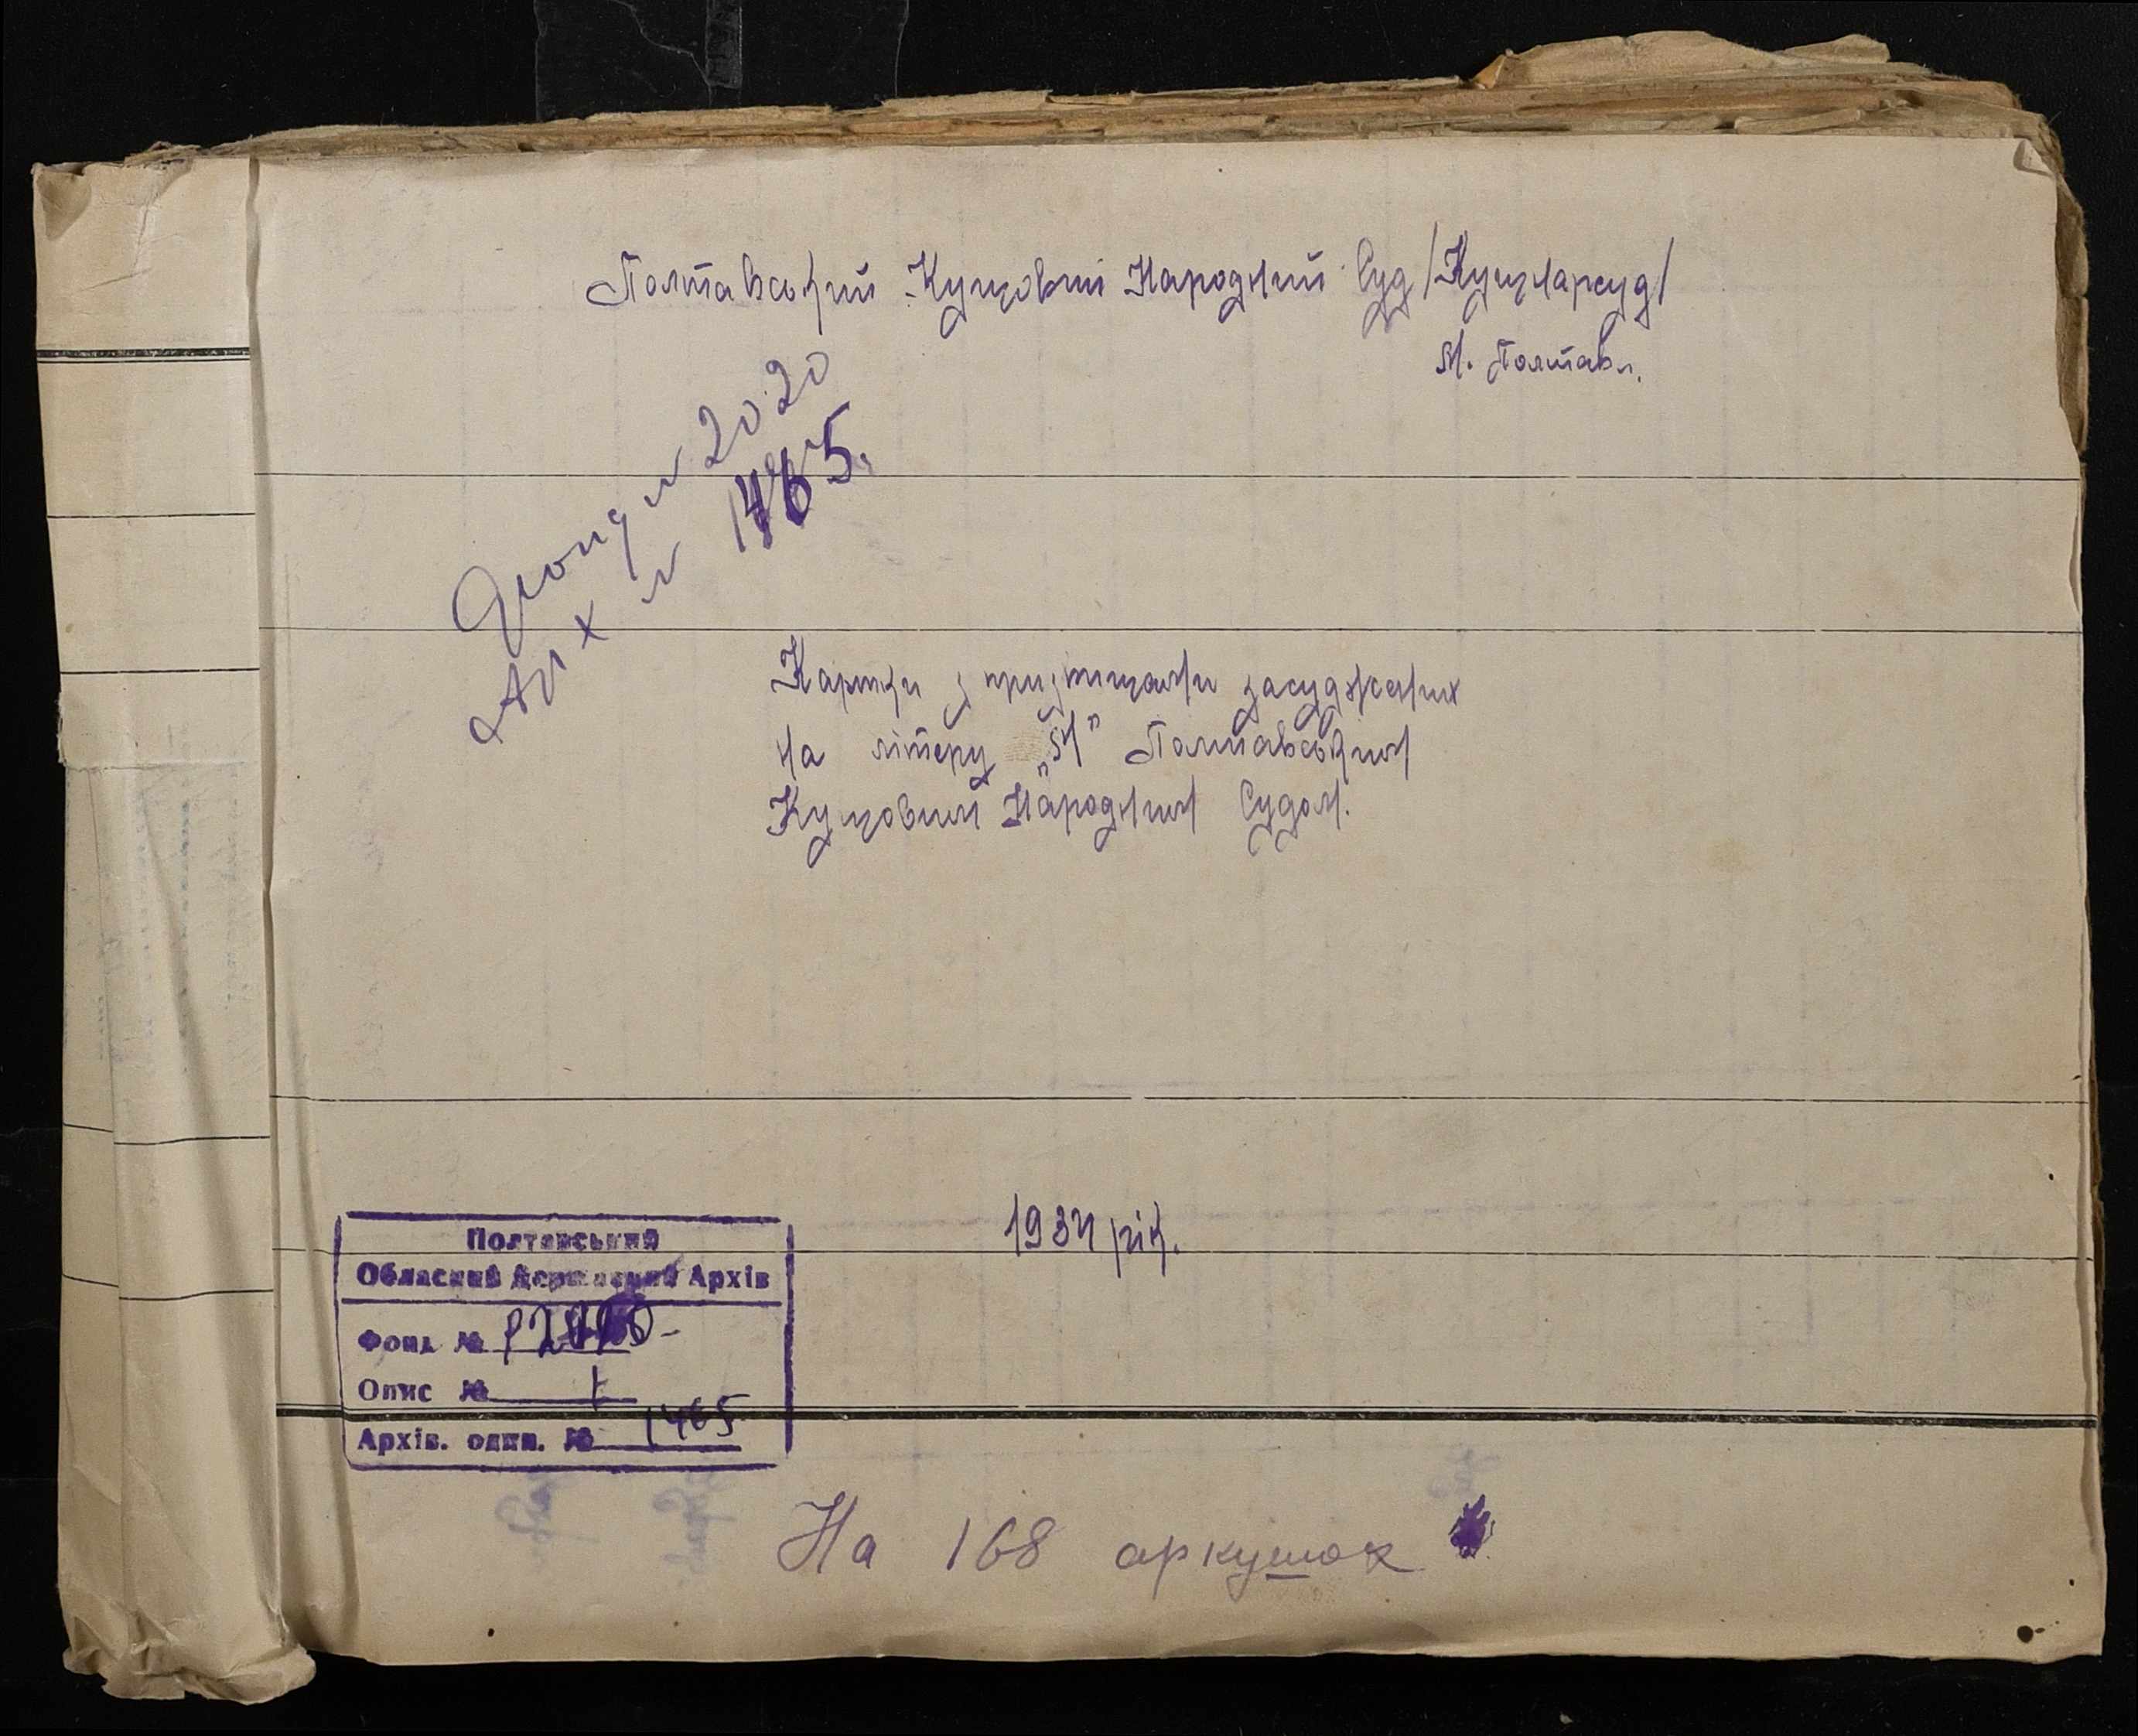 Полтавський Кущовий Народний Суд /Кущнарсуд/
М. Полтава.
Фонд № 2020
Арх № 1465.
Картки з прізвищами засуджених
на літеру „М" Полтавським
Кущовим Народним Судом.
1934 рік.
Полтавський
Обласний Державний Архів
Фонд №
Опис № 1
Архів. один. № 1465
На 168 аркушах